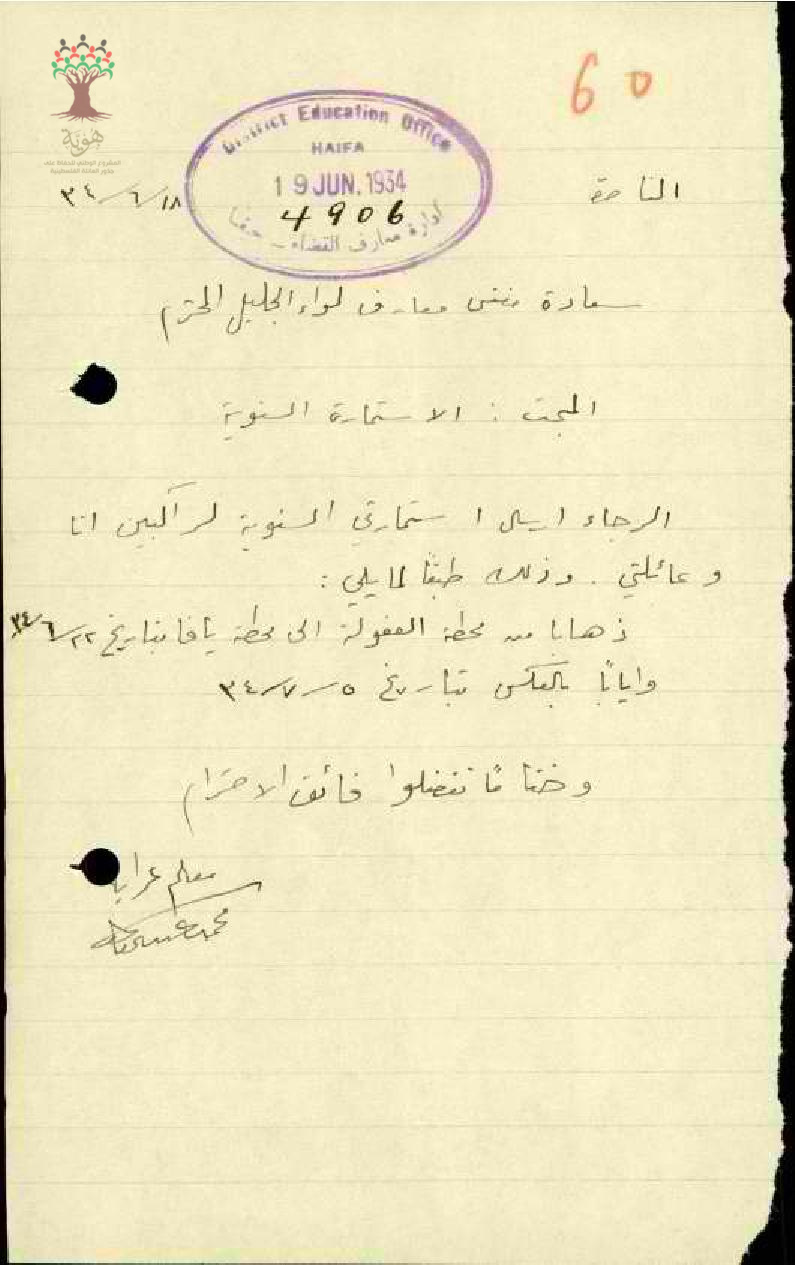 60
هوية
المشروع الوطني للحفاظ على
جذور العائلة الفلسطينية
District Education Office
HAIFA
19 JUN. 1934
4906
ادارة معارف القضاء - حيفا
الناصرة
١٨/٦/٣٤
سعادة مفتش معارف لواء الجليل المحترم
المبحث : الاستمارة السنوية
الرجاء ارسال استمارتي السنوية لراكبين انا
وعائلتي . وذلك طبقًا لما يلي :
ذهابا من محطة العفولة الى محطة يافا بتاريخ ٢٢/٦/٣٤
وايابًا بالعكس بتاريخ ٥/٧/٣٤
وختامًا تفضلوا فائق الاحترام
معلم عرابه
محمد